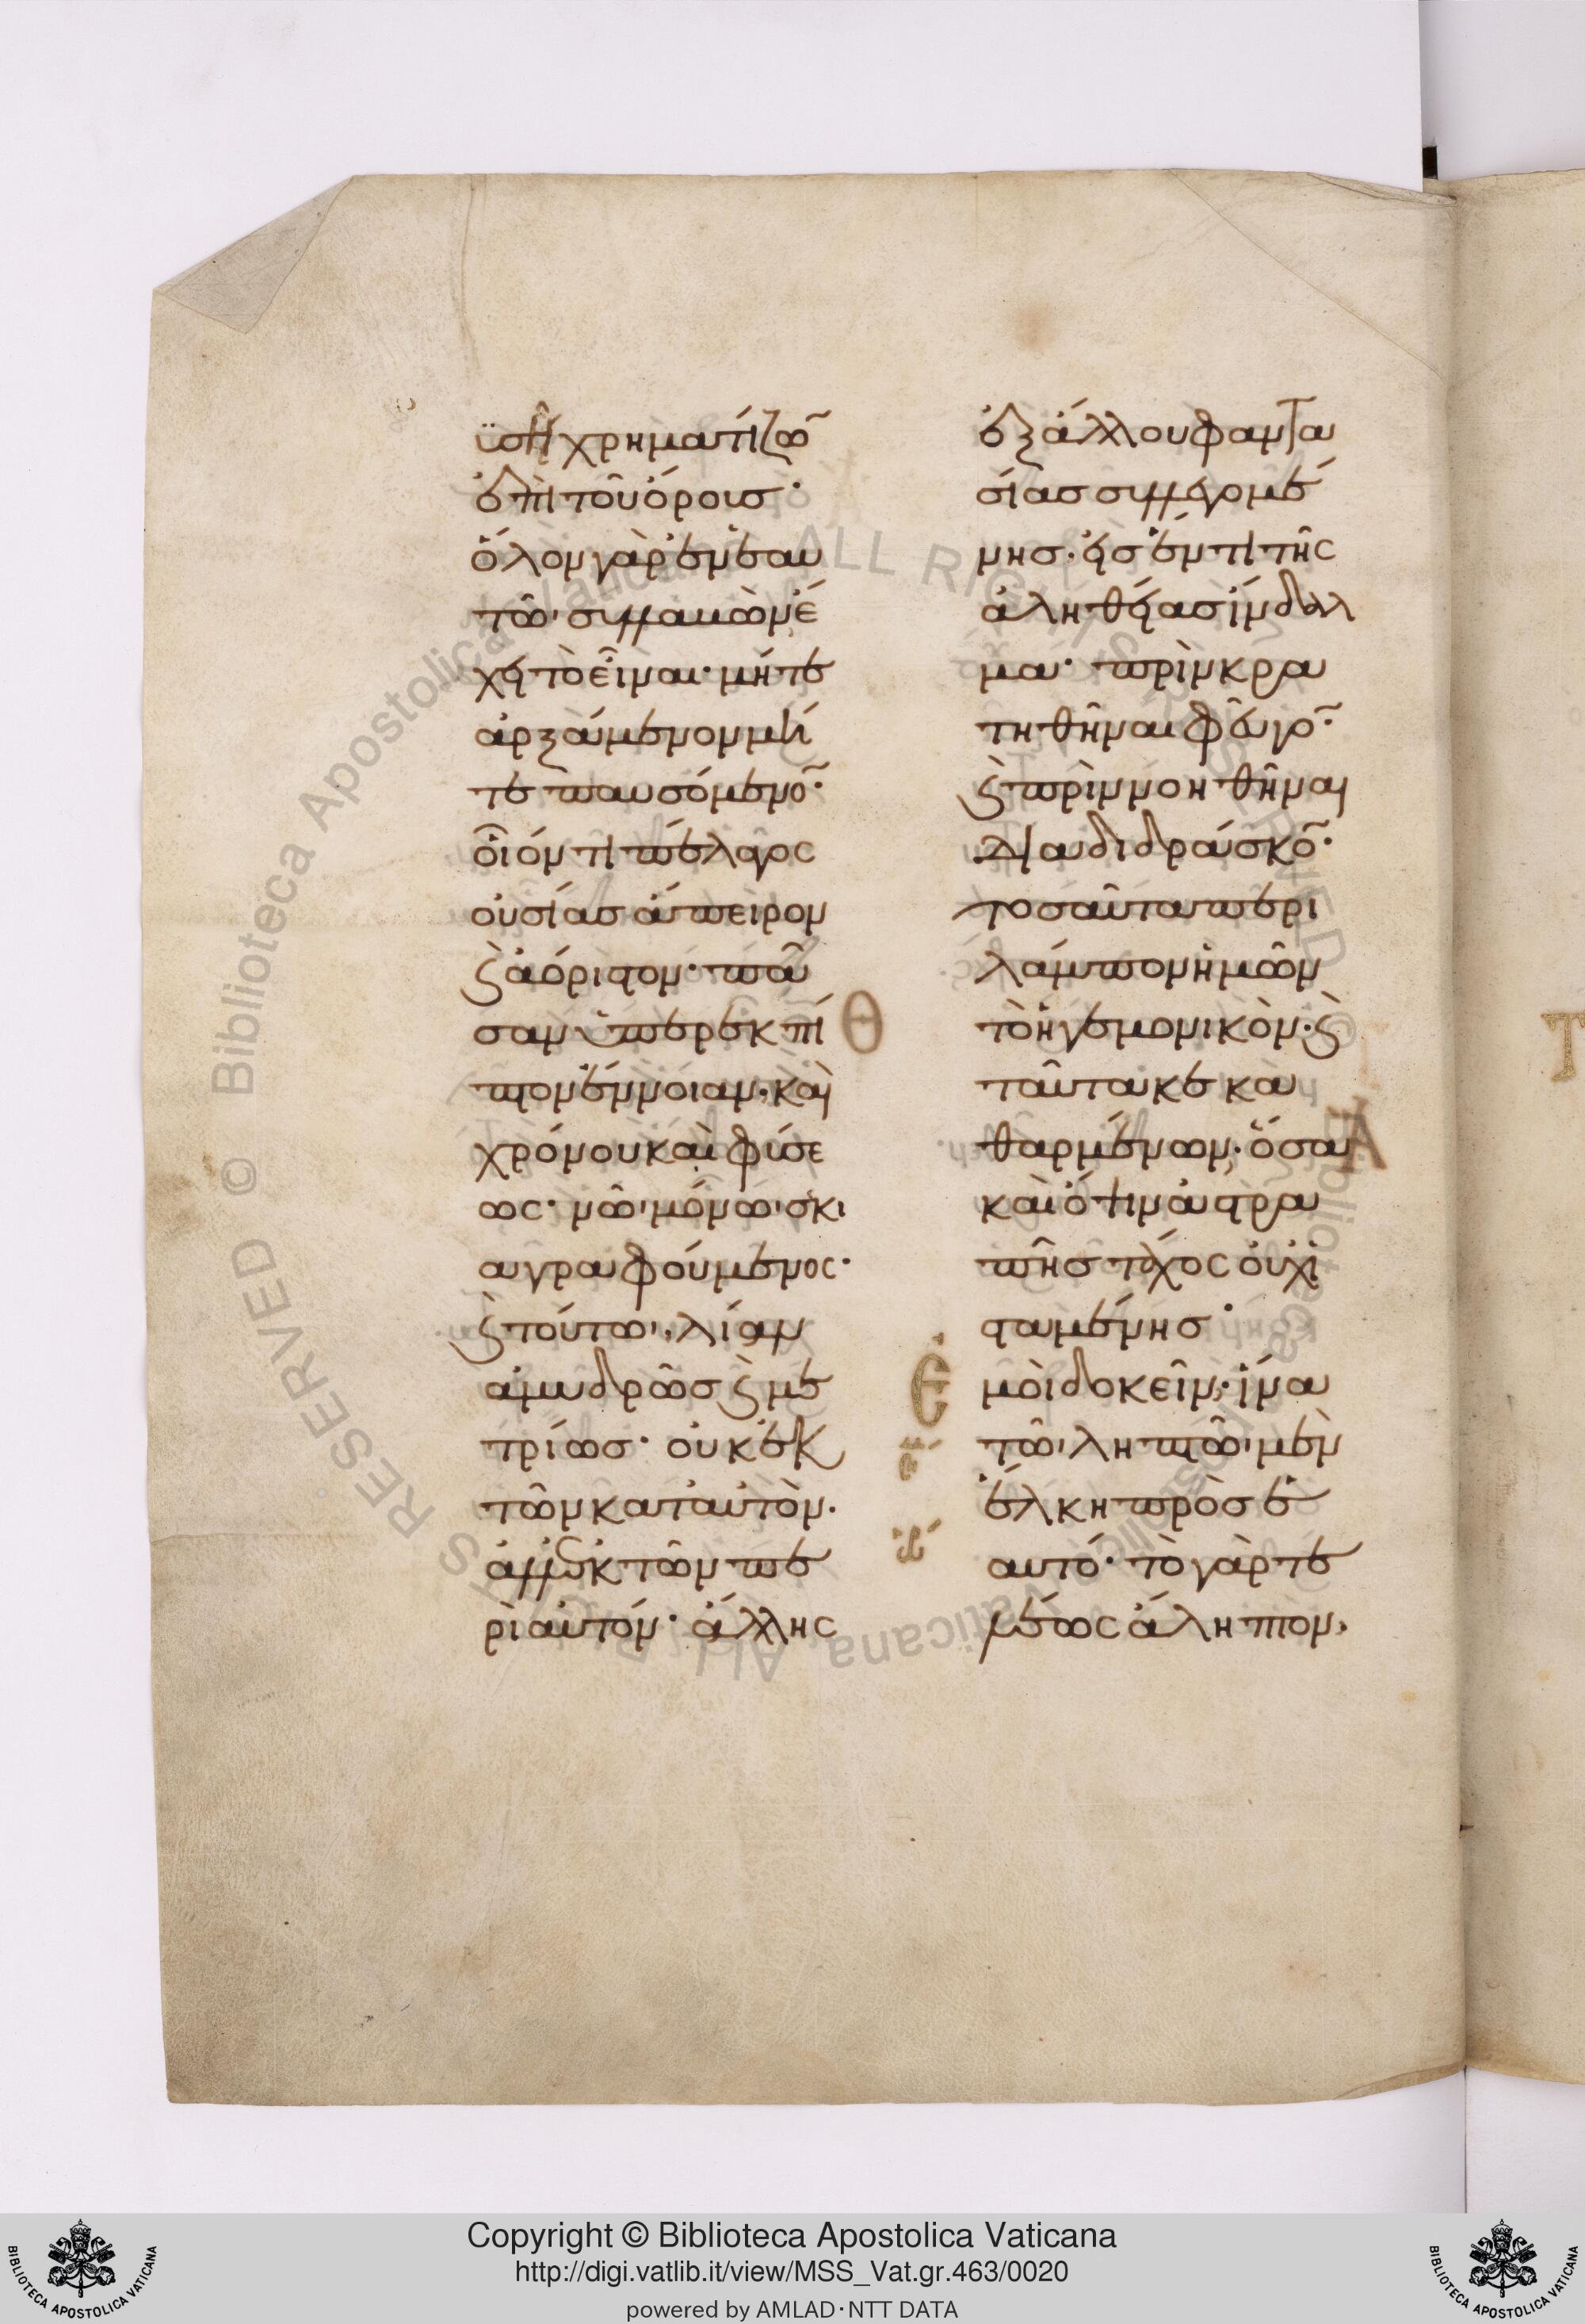 ϋσῆ χρηματίζω̃
ἐπὶ τοῦ ὄρους·
ὅλον γὰρ ἐν ἑαυ
τῶ συλλαβὼν ἔ
χει τὸ εἶναι· μήτε
ἀρξάμενον μή
τε παυσόμενο̃·
οἷόν τι πέλαγος
οὐσίας ἄπειρον
καὶ ἀόριστον· πᾶ
σαν ὑπερεκπί
πτον ἔννοιαν· καὶ
χρόνου καὶ φύσε
ως· νῶ μόνω σκι
αγραφούμενος·
καὶ τούτω, λίαν
ἀμυδρῶς καὶ με
τρίως· οὐκ ἐκ
τῶν κατ' αὐτὸν·
ἀλλ' ἐκ τῶν πε
ρὶ αὐτόν· ἄλλης
Θ
ἐξ ἄλλου φαντα
σίας συλλεγομέ
νης· εἰς ἕν τι τῆς
ἀληθείας ἴνδαλ
μα· πρὶν κρα
τηθῆναι φεῦγο̃·
καὶ πρὶν νοηθῆναι
διαδιδράσκο̃·
τοσαῦτα περι
λάμπον ἡμῶν
τὸ ἡγεμονικὸν· καὶ
ταῦτα κεκα
θαρμένων· ὅσα
καὶ ὄψιν ἀστρα
πῆς τάχος οὐχ ἱ
σταμένης·
Ἐμοὶ δοκεῖν· ἵνα
τῶ ληπτῶ μὲν
ἕλκη πρὸς ἑ
αυτό· τὸ γὰρ τε
λέως ἄληπτον,
© Biblioteca Apostolica Vaticana ALL RIGHTS RESERVED
Copyright © Biblioteca Apostolica Vaticana
http://digi.vatlib.it/view/MSS_Vat.gr.463/0020
powered by AMLAD · NTT DATA
BIBLIOTECA APOSTOLICA VATICANA
BIBLIOTECA APOSTOLICA VATICANA